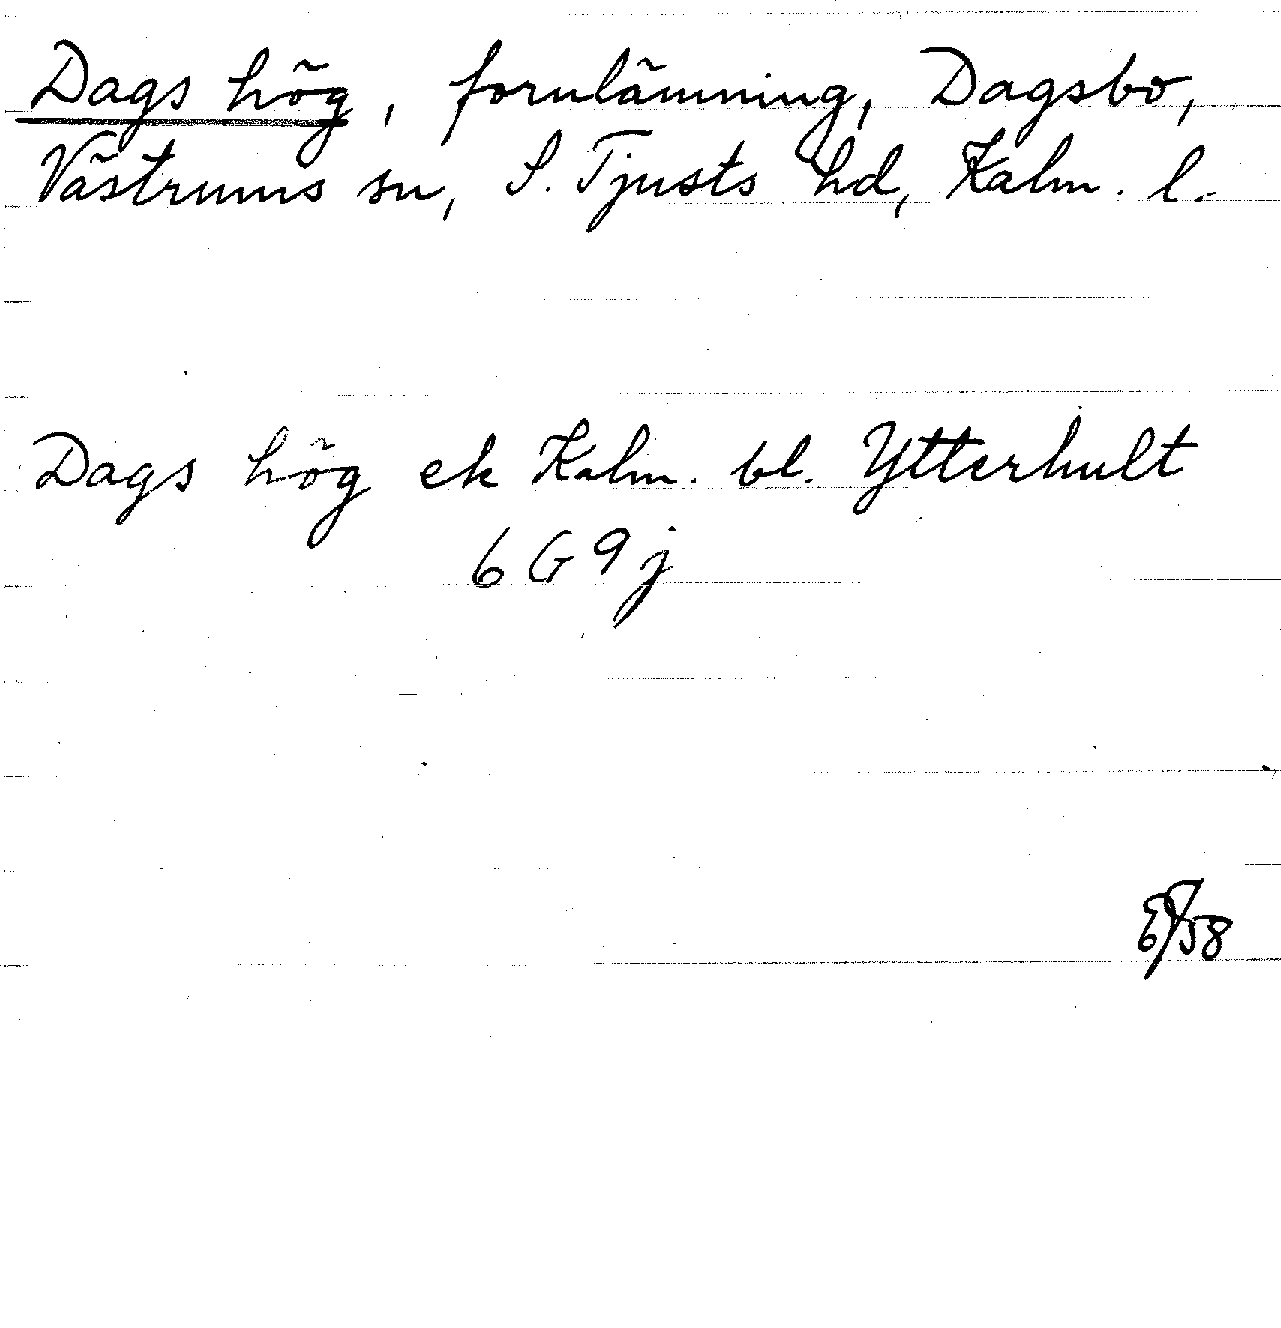 Dags hög, fornlämning, Dagsbo,
Västrums sn, S. Tjusts hd, Kalm. l.
Dags hög ek Kalm. bl. Ytterhult
6 G 9 j